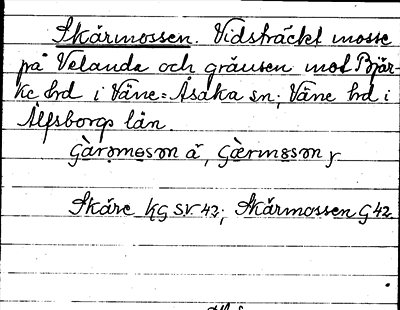 Skårmossen. Vidsträckt mosse
på Velanda och gränsen mot Bjär-
ke hd i Väne=Åsaka sn; Väne hd i
Älfsborgs län.
Skåre KG SV 43; Skårmossen G 42